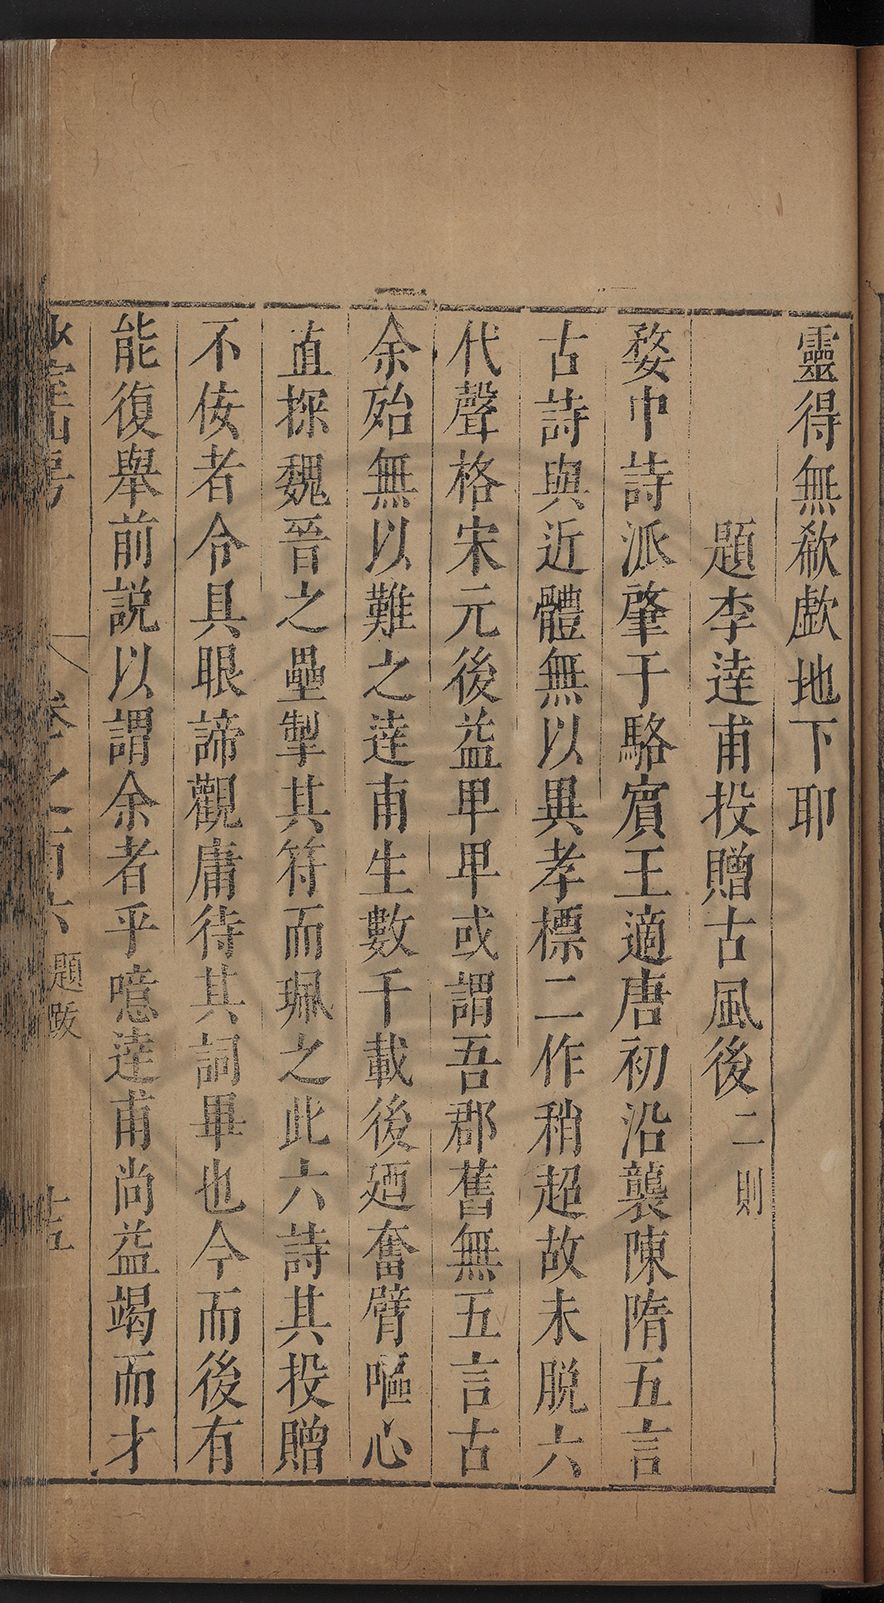 靈得無欷歔地下耶
題李達甫投贈古風後二則
婺中詩派肇于駱賓王適唐初沿襲陳隋五言
古詩與近體無以異孝標二作稍超故未脫六
代聲格宋元後益卑卑或謂吾郡舊無五言古
余殆無以難之達甫生數千載後廼奮臂嘔心
直探魏晉之壘掣其符而珮之此六詩其投贈
不佞者令具眼諦觀庸待其詞畢也今而後有
能復舉前説以謂余者乎噫達甫尚益竭而才
卷之百六 題跋 十五